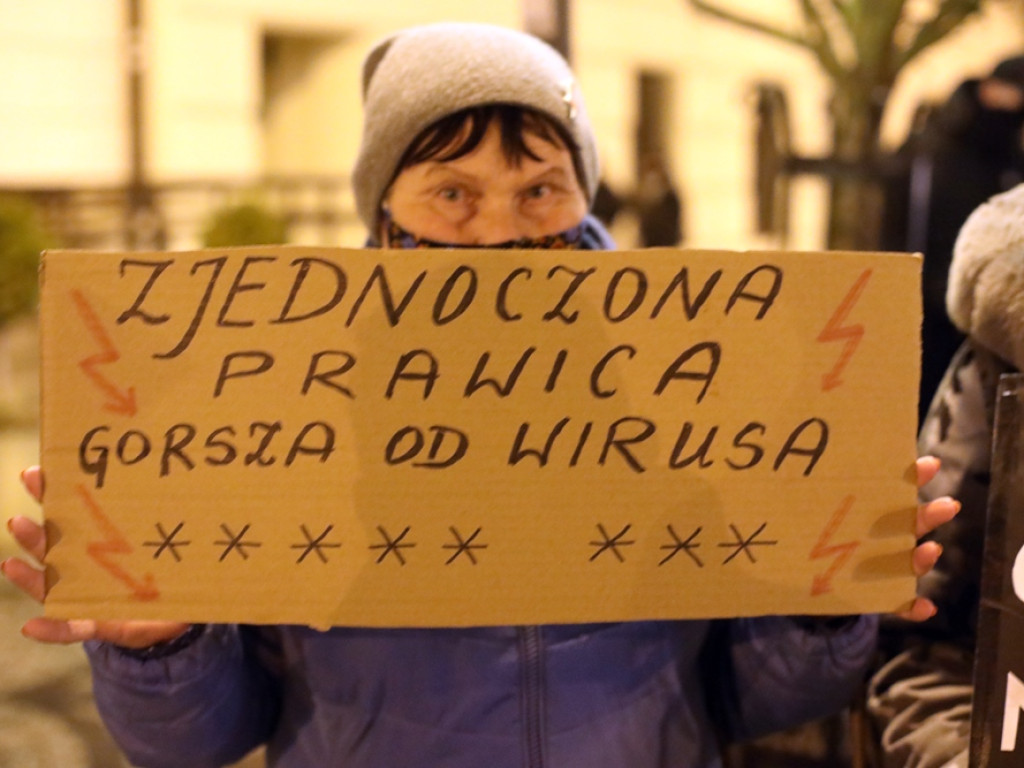 ZJEDNOCZONA
PRAWICA
GORSZA OD WIRUSA
***** ***